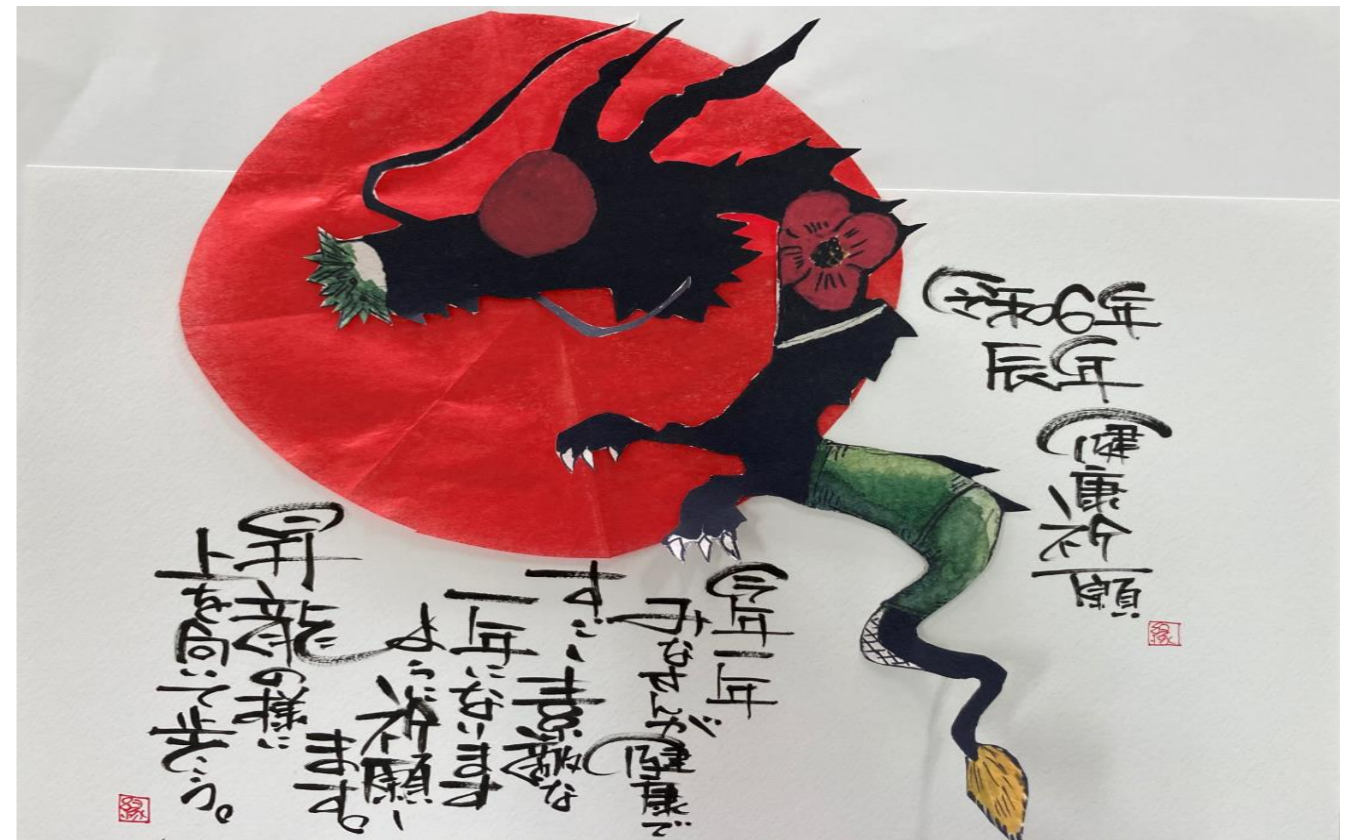 令和6年
辰年
健康祈願
縁
今年一年
みなさんが健康で
すごし素敵な
一年になります
ように祈願し
ます。
今年龍の様に
上を向いて歩こう。
縁